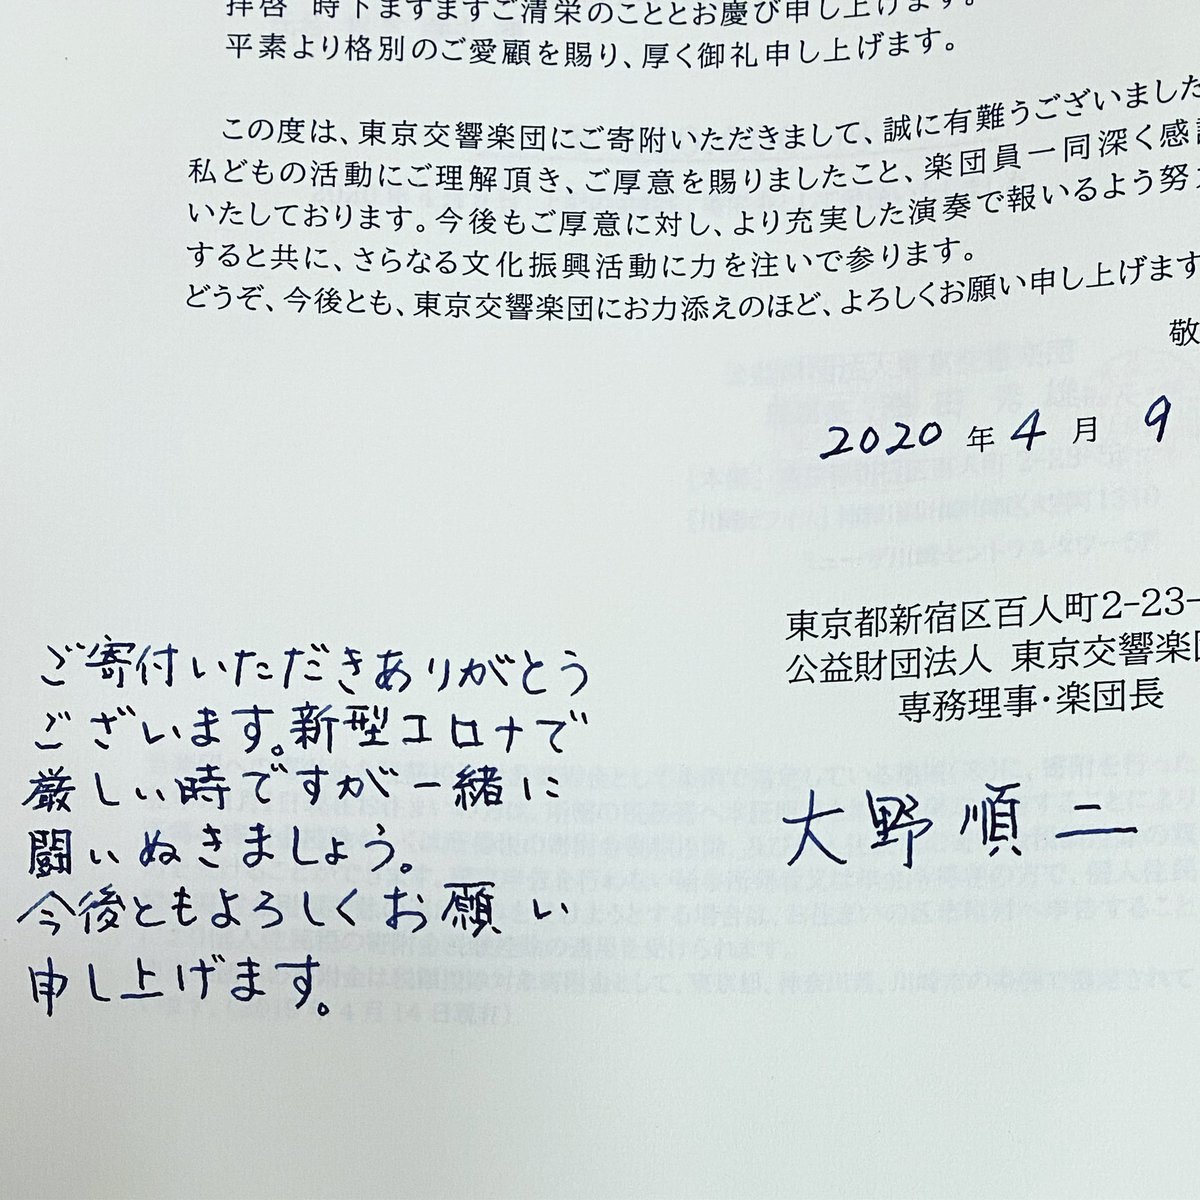 拝啓 時下ますますご清栄のこととお慶び申し上げます。
平素より格別のご愛顧を賜り、厚く御礼申し上げます。
この度は、東京交響楽団にご寄附いただきまして、誠に有難うございました
私どもの活動にご理解頂き、ご厚意を賜りましたこと、楽団員一同深く感謝
いたしております。今後もご厚意に対し、より充実した演奏で報いるよう努力
すると共に、さらなる文化振興活動に力を注いで参ります。
どうぞ、今後とも、東京交響楽団にお力添えのほど、よろしくお願い申し上げます
敬
2020 年 4 月 9
東京都新宿区百人町2-23-
公益財団法人 東京交響楽団
専務理事・楽団長
大野順二
ご寄付いただきありがとう
ございます。新型コロナで
厳しい時ですが一緒に
闘いぬきましょう。
今後ともよろしくお願い
申し上げます。